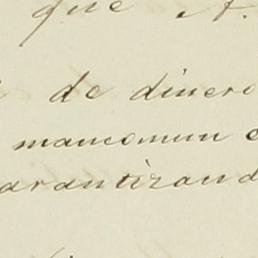 que A.
de dinero
mancomun e
arantizand